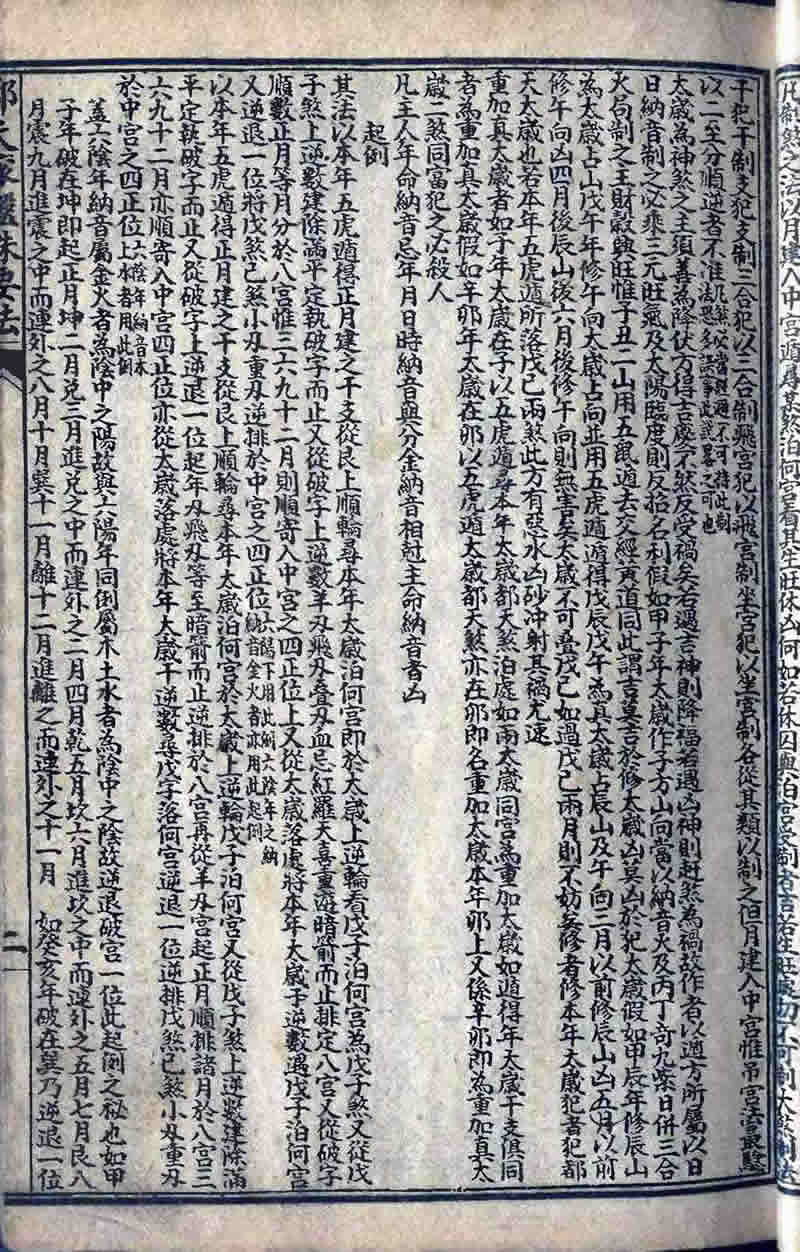 凡制煞之法以月建入中宮遁尋某煞泊何宮看其生旺休囚何如若休囚與泊宮受制者吉若生旺處切不可制大歲制法
干犯干制支犯支制三合犯以三合制飛宮犯以飛宮制坐宮犯以坐宮制各從其類以制之但月建入中宮惟吊宮法最驗
以二至分順逆者不准凡煞必當避不可恃此制法恐多誤事此說畧之可也
太歲為神煞之主須善為降伏方得吉慶不然反受禍矣若遇吉神則降福若遇凶神則赶煞為禍故作者以遁方所屬以日
日納音制之必乘三元旺氣及太陽臨度則反招名利假如甲子年太歲作子方山向當以納音火及丙丁奇九紫日併三合
火局制之主財穀興旺惟子丑二山用五鼠遁去交經黃道同此謂吉莫吉於修太歲凶莫凶於犯太歲假如甲辰年修辰山
為太歲占山戊午年修午向太歲占向並用五虎遁遁得戊辰戊午為真太歲占辰山及午向三月以前修辰山凶五月以前
修午向凶四月後辰山後六月後修午向則無害矣太歲不可疊戊己如過戊己兩月則不妨矣修者修本年太歲犯者犯都
天太歲也若本年五虎遁所落戊己兩煞此方有惡水凶砂冲射其禍尤速
重加真太歲者如子年太歲在子以五虎遁尋本年太歲都天煞泊處如兩太歲同宮為重加太歲如遁得年太歲干支俱同
者為重加真太歲假如辛卯年太歲在卯以五虎遁太歲都天煞亦在卯即名重加太歲本年卯上又係辛卯即為重加真太
歲二煞同窩犯之必殺人
凡主人年命納音忌年月日時納音與分金納音相尅主命納音者凶
起例
其法以本年五虎遁得正月建之干支從艮上順輪尋本年太歲泊何宮即於太歲上逆輪看戊子泊何宮為戊子煞又從戊
子煞上逆數建除滿平定執破字而止又從破字上逆數羊刃飛刃叠刃血忌紅羅天喜重遊暗箭而止排定八宮又從破字
順數正月等月分於八宮惟三六九十二月則順寄入中宮之四正位上又從太歲落處將本年太歲干逆數遇戊子泊何宮
又逆退一位將戊煞己煞小刃重刃逆排於中宮之四正位六陽下用此例六陰年之納納音金火者亦用此起例
以本年五虎遁得正月建之干支從艮上順輪尋本年太歲泊何宮於太歲上逆輪戊子泊何宮又從戊子煞上逆數建除滿
平定執破字而止又從破字上逆退一位起年刃飛刃等至暗箭而止逆排於八宮再從羊刃宮起正月順排諸月於八宮三
六九十二月亦順寄入中宮四正位亦從太歲落處將本年太歲干逆數尋戊字落何宮逆退一位逆排戊煞己煞小刃重刃
於中宮之四正位六陰年納音木土水者用此例
蓋六陰年納音屬金火者為陰中之陽故與六陽年同例屬木土水者為陰中之陰故逆退破宮一位此起例之秘也如甲
子年破在坤即起正月坤二月兌三月進兌之中而連外之二月四月乾五月坎六月進坎之中而連外之五月七月艮八
月震九月進震之中而連外之八月十月巽十一月離十二月進離之中而連外之十一月 如癸亥年破在巽乃逆退一位
二